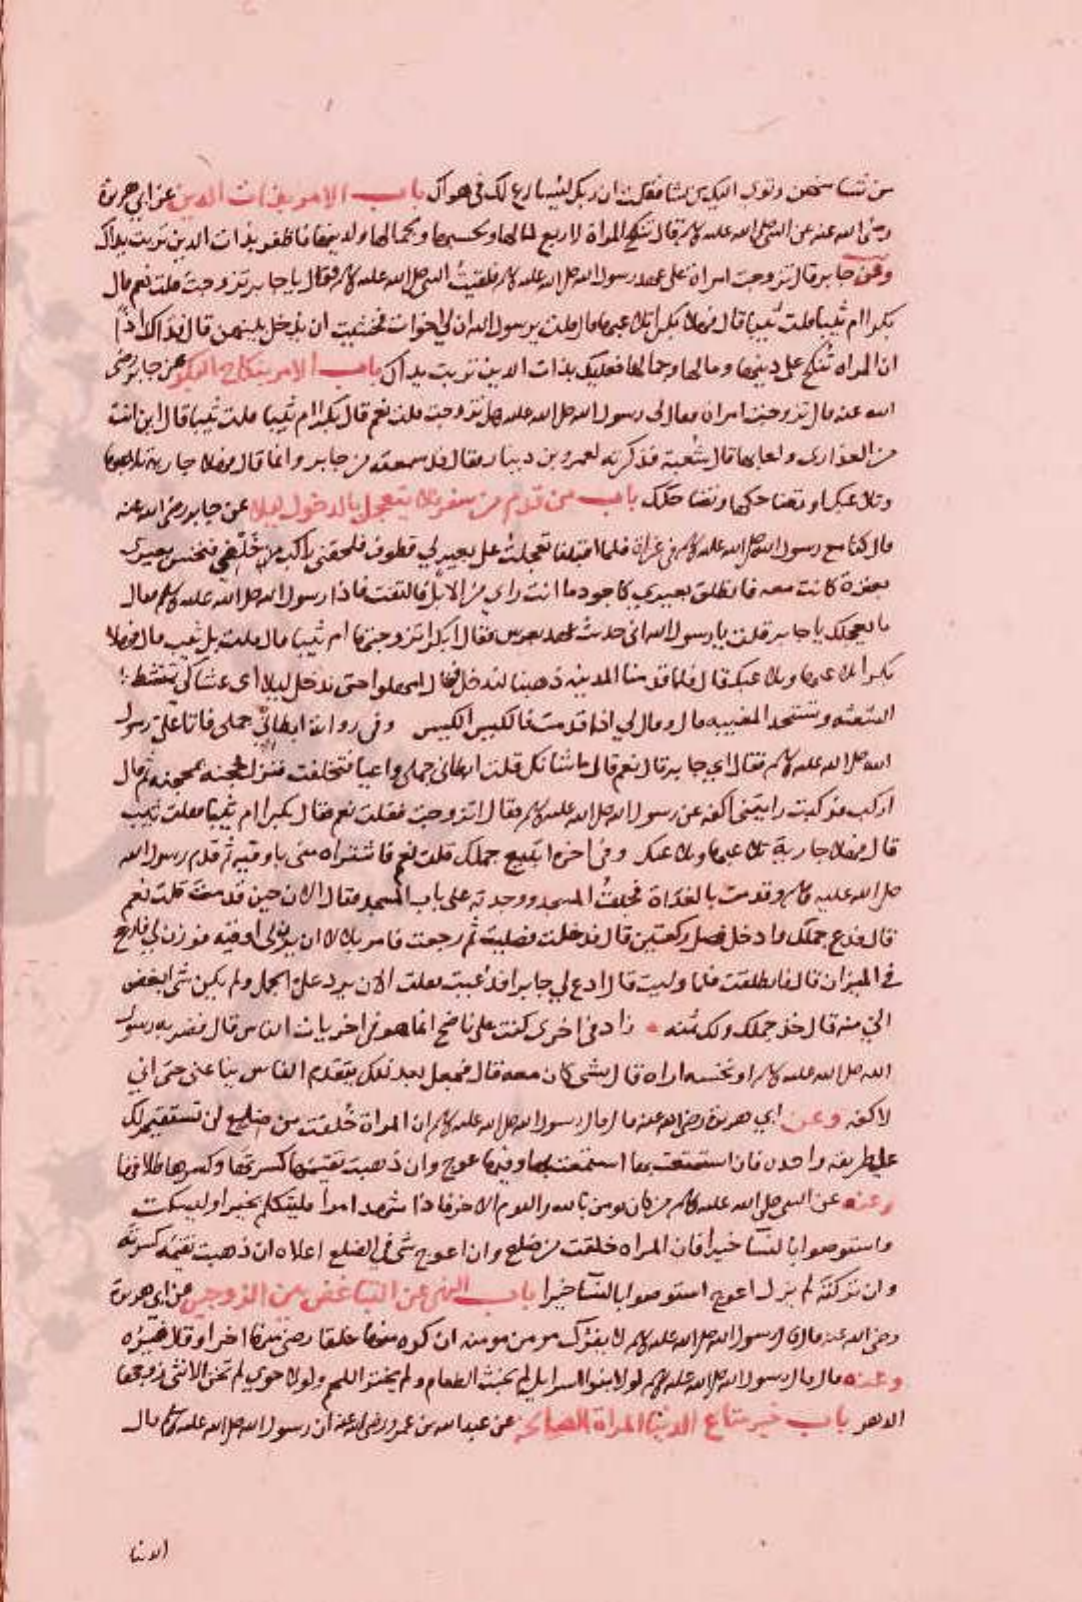 من تشا منهن وتوى اليك من تشا فقلت ان ربك ليسارع لك في هواك باب الامر بذات الدين عن ابي هريرة
رضي الله عنه عن النبي صلى الله عليه وسلم قال تنكح المراة لاربع لمالها ولحسبها ولجمالها ولدينها فاظفر بذات الدين تربت يداك
وعن جابر قال تزوجت امراة على عهد رسول الله صلى الله عليه وسلم فلقيت النبي صلى الله عليه وسلم فقال يا جابر تزوجت قلت نعم قال
بكرا ام ثيبا قلت ثيبا قال فهلا بكرا تلاعبها قال قلت يرسول الله ان لي اخوات فخشيت ان تدخل بينهن قال فذاك اذا
ان المراه تنكح على دينها ومالها وجمالها فعليك بذات الدين تربت يداك باب الامر بنكاح البكر عن جابر رضي
الله عنه قال تزوجت امراة فقال لي رسول الله صلى الله عليه هل تزوجت قلت نعم قال بكرا ام ثيبا قلت ثيبا قال اين انت
من العذارى ولعابها قال شعبة فذكرته لعمرو بن دينار فقال قد سمعته من جابر وانما قال فهلا جارية تلاعبها
وتلاعبك او تضاحكها وتضاحكك باب من قدم من سفر فلا يتعجل بالدخول ليلا عن جابر رضي الله عنه
قال كنا مع رسول الله صلى الله عليه وسلم في غزاة فلما اقبلنا تعجلت على بعير لي قطوف فلحقني راكب من خلفي فنخس بعيري
بعنزة كانت معه فانطلق بعيري كاجود ما انت راي من الابل فالتفت فاذا رسول الله صلى الله عليه وسلم فقال
ما يعجلك يا جابر قلت يا رسول الله اني حديث عهد بعرس فقال ابكرا تزوجتها ام ثيبا قال قلت بل ثيب قال فهلا
بكرا تلاعبها وتلاعبك قال فلما قدمنا المدينة ذهبنا لندخل فقال امهلوا حتى ندخل ليلا اي عشا كي تمتشط
الشعثه وتستحد المغيبه قال وقال لي اذا قدمت فالكيس الكيس وفي رواية ابطا بي جملي فاتا علي رسول
الله صلى الله عليه وسلم فقال لي جابر قال نعم قال ما شانك قلت ابطا بي جملي واعيا فتخلفت فنزل فحجنه بمحجنه ثم قال
اركب فركبت رايتني اكفه عن رسول الله صلى الله عليه وسلم فقال اتزوجت فقلت نعم فقال بكرا ام ثيبا فقلت ثيب
قال فهلا جارية تلاعبها وتلاعبك وفي اخره اتبيع جملك قلت نعم فاشتراه مني باوقيه ثم قدم رسول الله
صلى الله عليه وسلم وقدمت بالغداة فجئت المسجد ووجدته على باب المسجد فقال الان حين قدمت قلت نعم
قال فدع جملك وادخل فصل ركعتين قال فدخلت فصليت ثم رجعت فامر بلالا ان يزن لي اوقيه فوزن لي فارجح
في الميزان قال فانطلقت فلما وليت قال ادع لي جابرا فدعيت فقلت الان يرد علي الجمل ولم يكن شي ابغض
الي منه قال خذ جملك ولك ثمنه زاد في اخرى كنت على ناضح انما هو في اخريات الناس قال فضربه رسول
الله صلى الله عليه وسلم او نخسه اراه قال بشي كان معه قال فجعل بعد ذلك يتقدم الناس ينازعني حتى اني
لاكفه وعن ابي هريرة رضي الله عنه قال قال رسول الله صلى الله عليه وسلم ان المراة خلقت من ضلع لن تستقيم لك
على طريقه واحده فان استمتعت بها استمتعت بها وفيها عوج وان ذهبت تقيمها كسرتها وكسرها طلاقها
وعنه عن النبي صلى الله عليه وسلم من كان يومن بالله واليوم الاخر فاذا شهد امرا فليتكلم بخير او ليسكت
واستوصوا بالنسا خيرا فان المراه خلقت من ضلع وان اعوج شي في الضلع اعلاه ان ذهبت تقيمه كسرته
وان تركته لم يزل اعوج استوصوا بالنسا خيرا باب النهي عن التباغض بين الزوجين عن ابي هريرة
رضي الله عنه قال قال رسول الله صلى الله عليه وسلم لا يفرك مومن مومنه ان كره منها خلقا رضي منها اخر او قال غيره
وعنه قال قال رسول الله صلى الله عليه وسلم لولا بنوا اسرايل لم يخبث الطعام ولم يخنز اللحم ولولا حوي لم تخن الانثى زوجها
الدهر باب خير متاع الدنيا المراة الصالحه عن عبد الله بن عمرو رضي الله عنه ان رسول الله صلى الله عليه وسلم قال
الدنيا